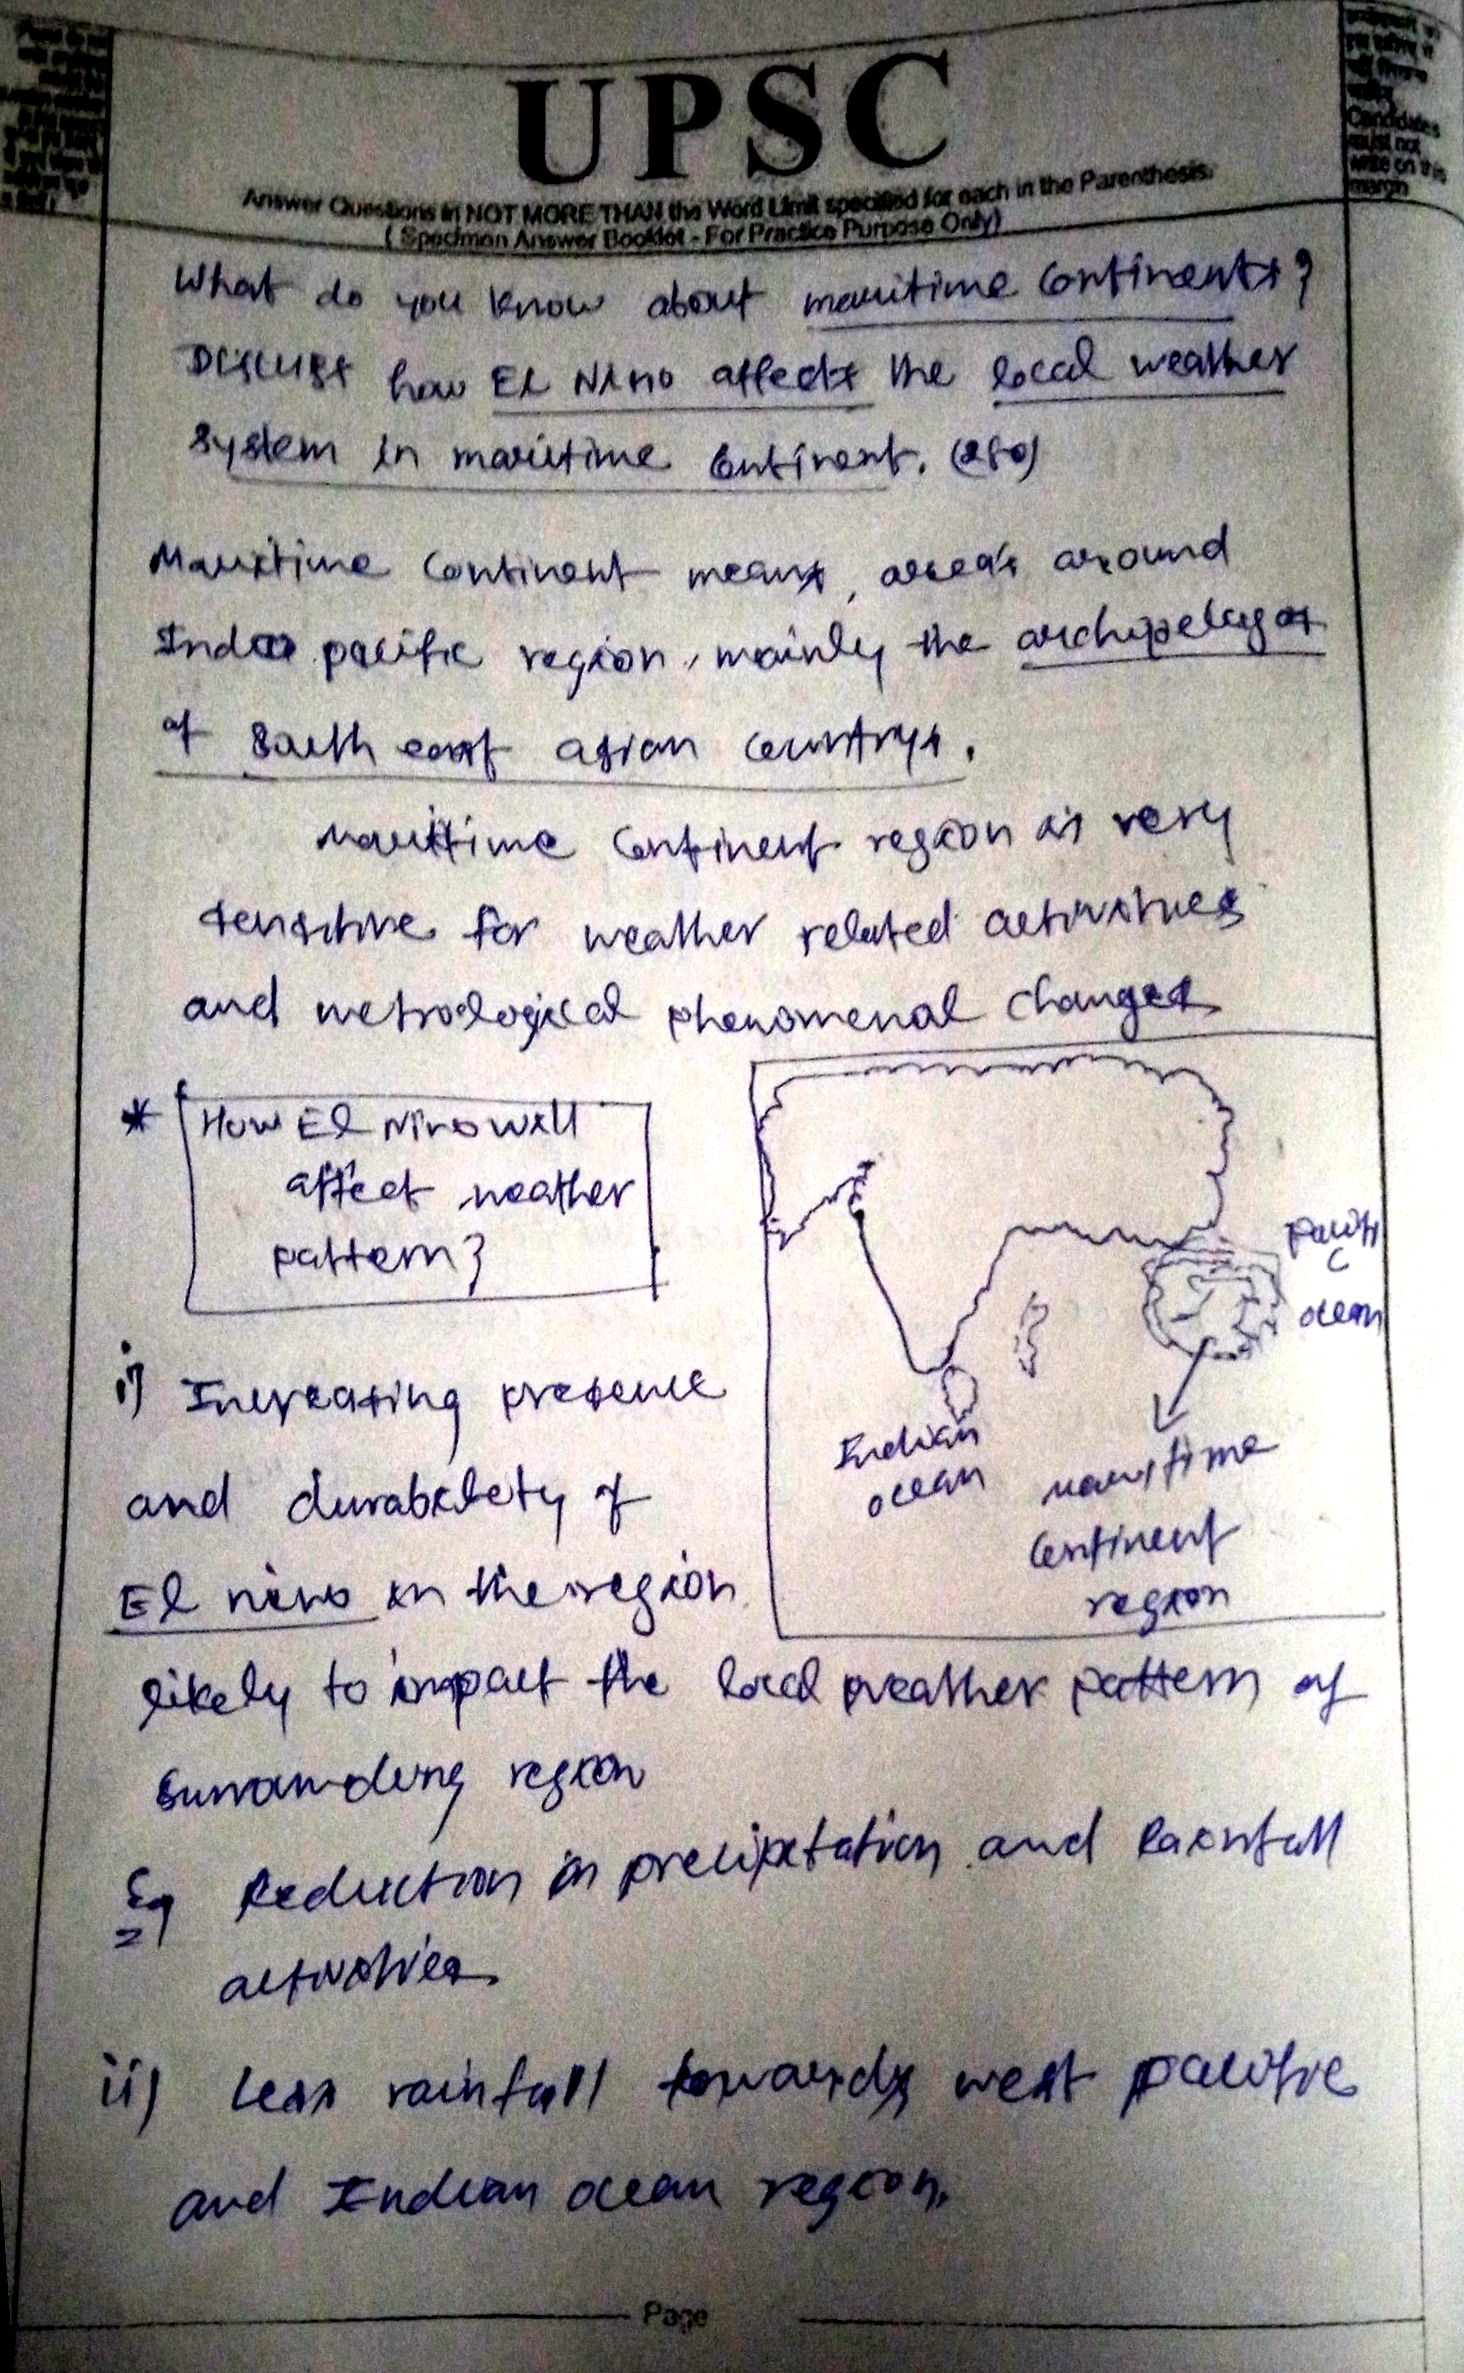 UPSC
Answer Questions in NOT MORE THAN the Word Limit specified for each in the Parenthesis.
( Specimen Answer Booklet - For Practice Purpose Only)
Candidates
must not
write on this
margin
What do you know about maritime continents?
Discuss how El Nino affects the local weather
system in maritime continent. (250)
Maritime continent means, area's around
Indo pacific region, mainly the archipelagos
of South east asian countrys.
Maritime continent region is very
sensitive for weather related activities
and metrological phenomenal changes
* How El Nino will
affect weather
pattern?
pacifi
c
ocean
Indian
ocean
maritime
continent
region
i) Increasing presence
and durability of
El nino in the region
likely to impact the local weather pattern of
surrounding region
Eg Reduction in precipitation and Rainfall
activities.
ii) Less rainfall towards west pacific
and Indian ocean region.
Page